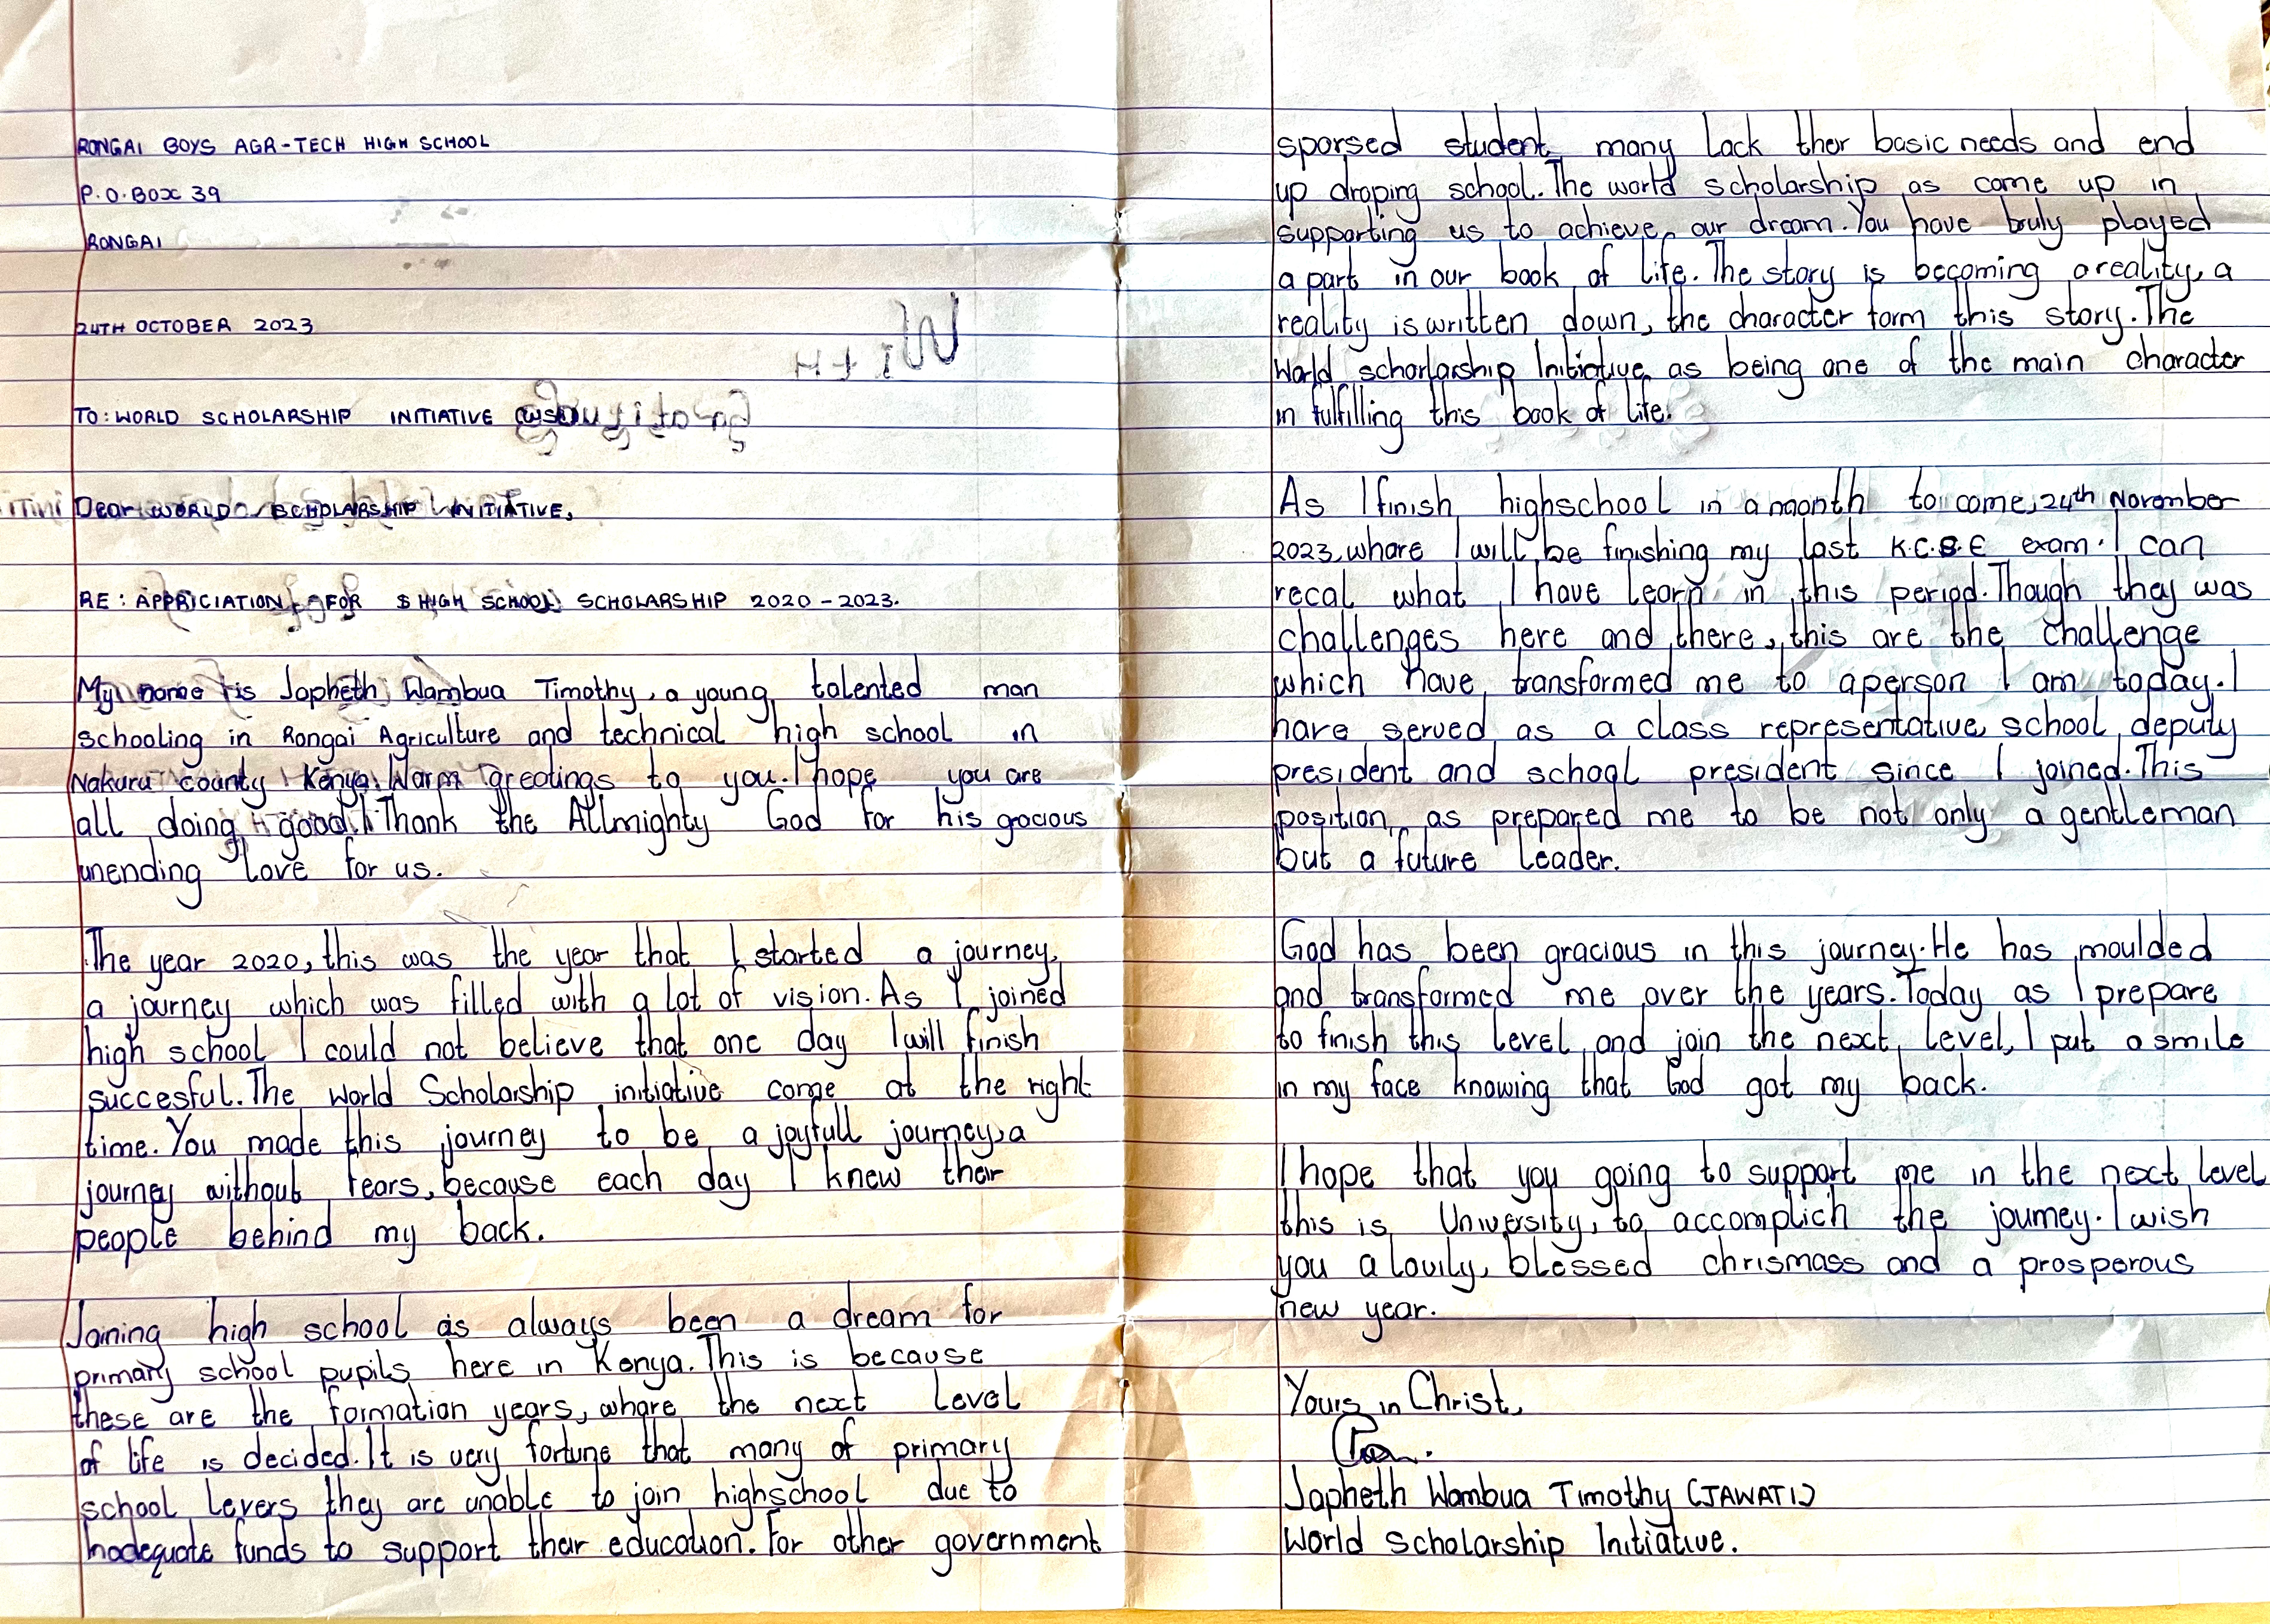 RONGAI BOYS AGR-TECH HIGH SCHOOL
P.O.BOX 39
RONGAI
24TH OCTOBER 2023
TO: WORLD SCHOLARSHIP INITIATIVE (WSI)
Dear WORLD SCHOLARSHIP INITIATIVE,
RE: APPRICIATION FOR HIGH SCHOOL SCHOLARSHIP 2020-2023.
My name is Japheth Wambua Timothy, a young talented man
schooling in Rongai Agriculture and technical high school in
Nakuru county Kenya. Warm greetings to you. I hope you are
all doing good. I Thank the Allmighty God for his gocious
unending love for us.
The year 2020, this was the year that I started a journey,
a journey which was filled with a lot of vision. As I joined
high school I could not believe that one day I will finish
succesful. The World Scholarship initiative come at the right
time. You made this journey to be a joyfull journey, a
journey without fears, because each day I knew their
people behind my back.
Joining high school as always been a dream for
primary school pupils here in Kenya. This is because
these are the formation years, whare the next level
of life is decided. It is very fortune that many of primary
school levers they are unable to join highschool due to
inadequate funds to support their education. For other government
sporsed student many lack ther basic needs and end
up droping school. The world scholarship as come up in
supporting us to achieve our dream. You have truly played
a part in our book of life. The story is becoming a reality, a
reality is written down, the character form this story. The
World schorlarship Initiative as being one of the main character
in fulfilling this book of life.
As I finish highschool in a moonth to come, 24th November
2023, whare I will be finishing my last K.C.S.E exam. I can
recal what I have learn in this period. Though they was
challenges here and there, this are the challenge
which have transformed me to a person I am today. I
have served as a class representative, school deputy
president and school president since I joined. This
position as prepared me to be not only a gentleman
but a future leader.
God has been gracious in this journey. He has moulded
and transformed me over the years. Today as I prepare
to finish this level and join the next level, I put a smile
in my face knowing that God got my back.
I hope that you going to support me in the next level
this is University, to accomplich the journey. I wish
you a lovily, blessed chrismass and a prosperous
new year.
Yours in Christ,
Japheth Wambua Timothy (JAWATI)
World Scholarship Initiative.